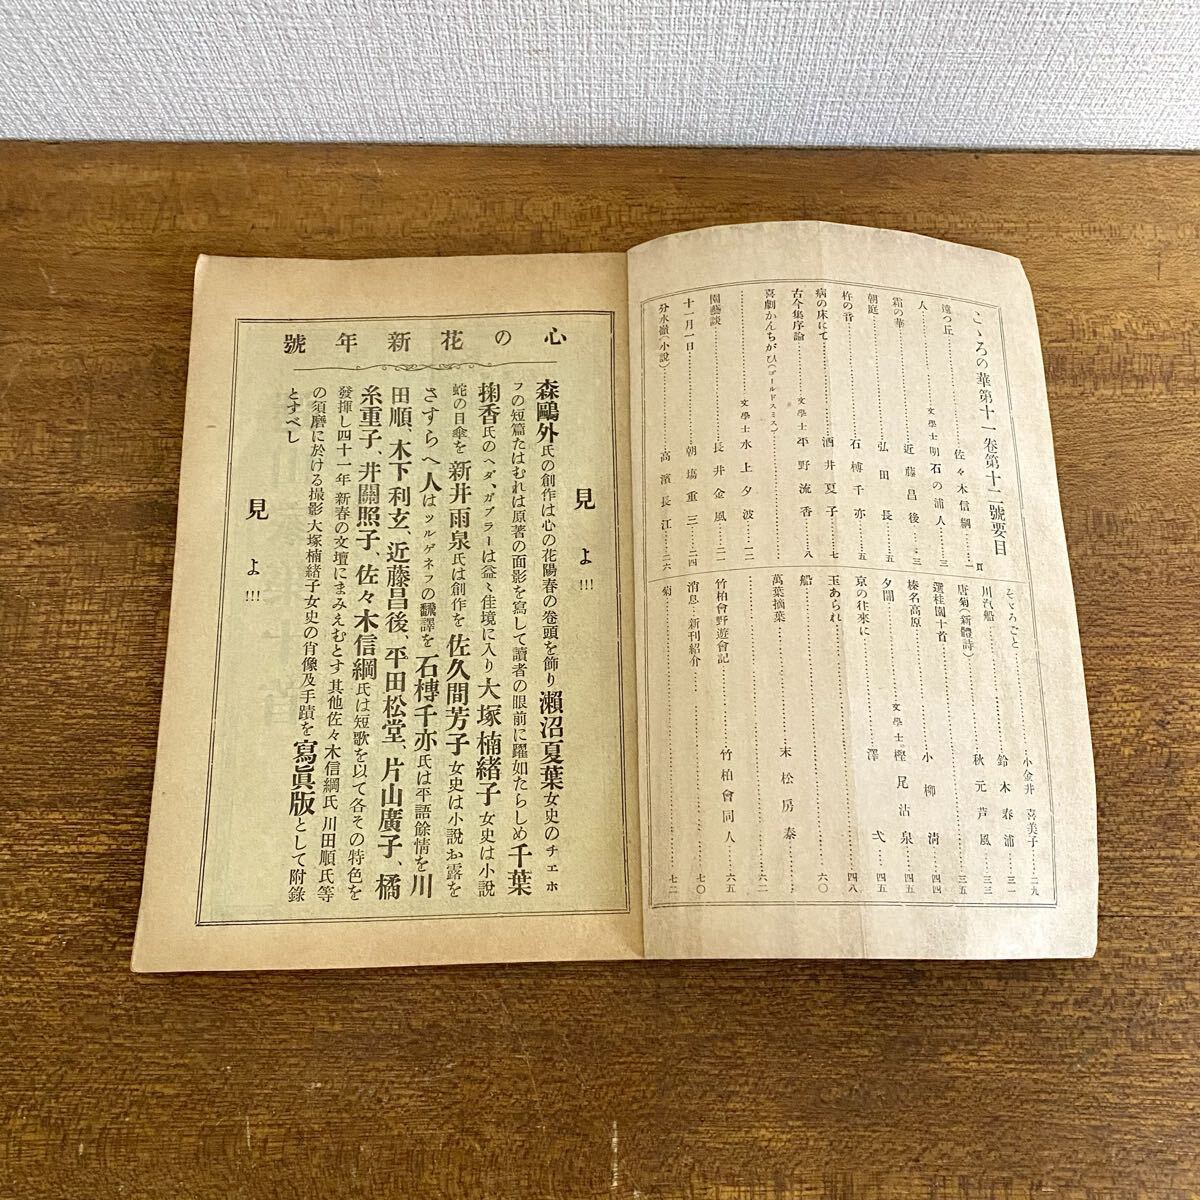 こゝろの華第十一卷第十二號要目
頁
遠つ丘………佐々木信綱…一
人………文學士 明石の浦人…三
霜の華………近藤昌後…三
朝庭………弘田長…五
杵の音………石榑千亦…五
病の床にて………酒井夏子…七
古今集序論………文學士 平野流香…八
喜劇かんちがひ(ゴールドスミス)
………文學士 水上夕波…一二
園藝談………長井金風…二一
十一月一日………朝塲重三…二四
分水嶺(小說)………高濱長江…二六
そゞろごと………小金井喜美子…二九
川汽船………鈴木春浦…三一
唐菊(新體詩)………秋元芦風…三三
選桂園十首………三五
榛名高原………小柳淸…四四
夕闇………文學士 樫尾沾泉…四五
京の往來に………澤弌…四五
玉あられ………四八
船………六〇
萬葉摘葉………末松房泰…六二
竹柏會野遊會記………竹柏會同人…六五
消息、新刊紹介………七〇
菊………七二
心の花新年號
見よ!!!
森鷗外氏の創作は心の花陽春の卷頭を飾り瀨沼夏葉女史のチエホ
フの短篇たはむれは原著の面影を寫して讀者の眼前に躍如たらしめ千葉
掬香氏のヘダ、ガブラーは益々佳境に入り大塚楠緖子女史は小說
蛇の目傘を新井雨泉氏は創作を佐久間芳子女史は小說お露を
さすらへ人はツルゲネフの飜譯を石榑千亦氏は平語餘情を川
田順、木下利玄、近藤昌後、平田松堂、片山廣子、橘
糸重子、井關照子、佐々木信綱氏は短歌を以て各その特色を
發揮し四十一年新春の文壇にまみえむとす其他佐々木信綱氏川田順氏等
の須磨に於ける撮影大塚楠緖子女史の肖像及手蹟を寫眞版として附錄
とすべし
見よ!!!